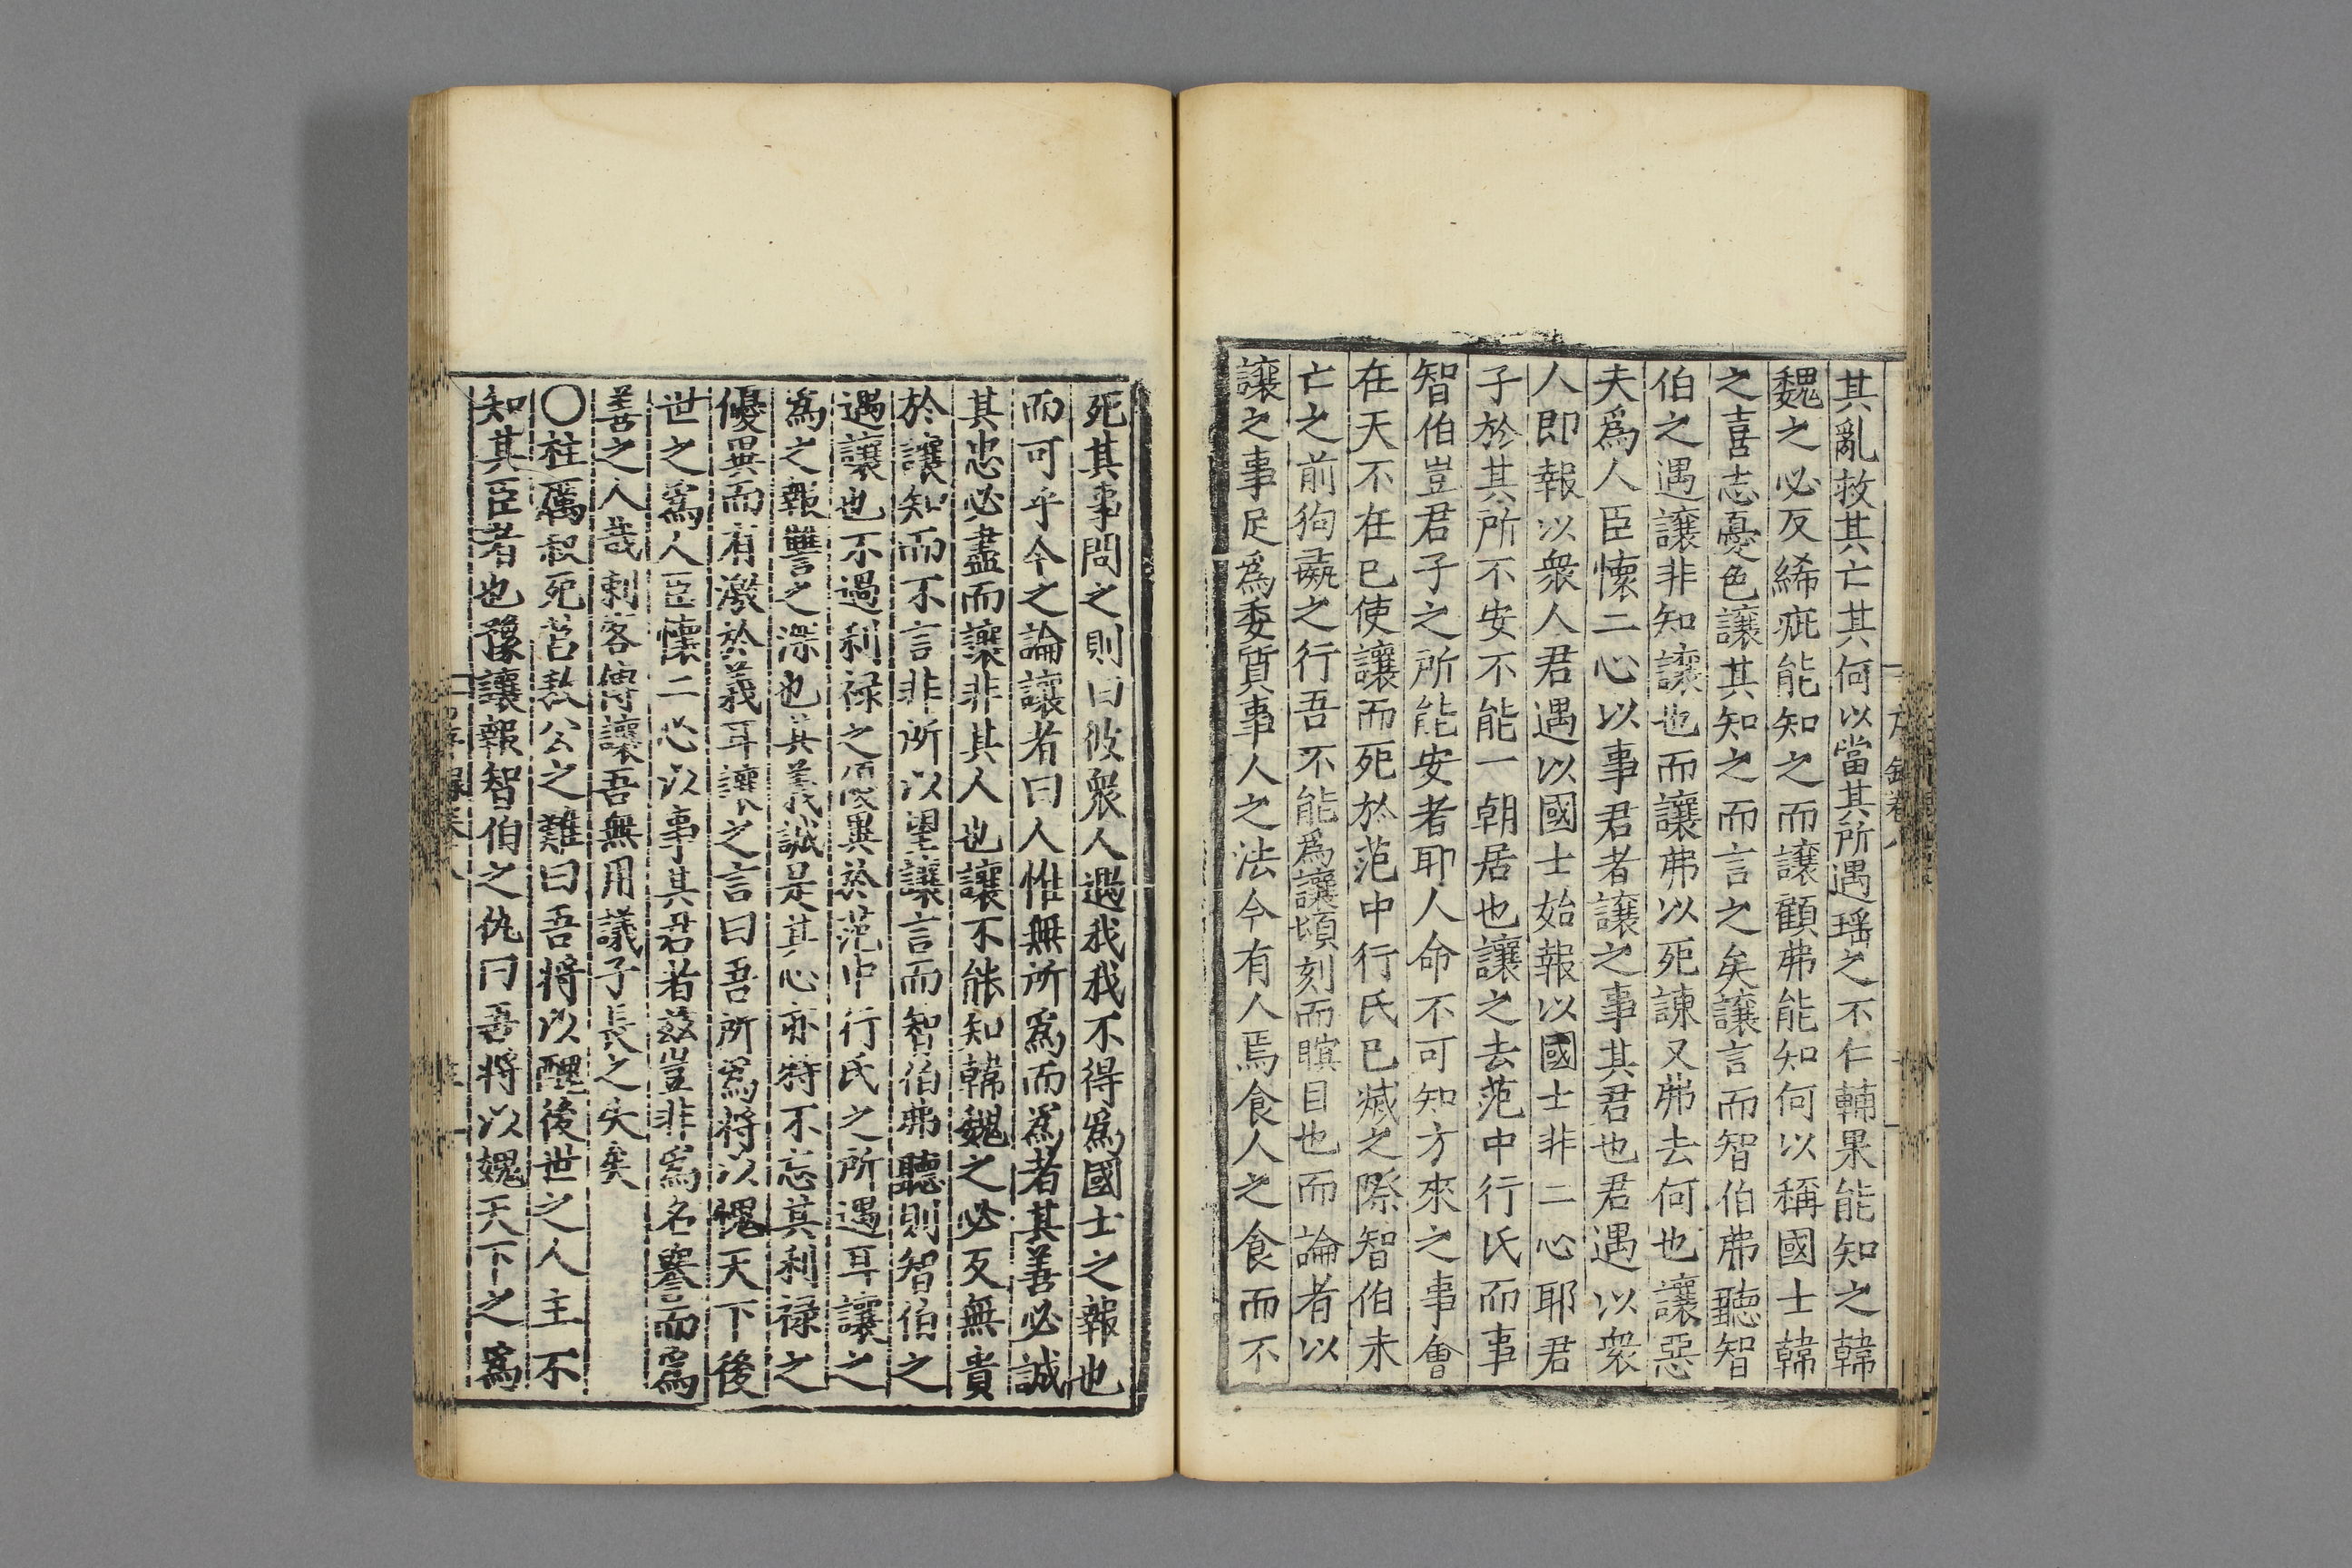 其亂救其亡其何以當其所遇瑶之不仁輔果能知之韓
魏之必反絺疵能知之而讓顧弗能知何以稱國士韓
之喜志憂色讓其知之而言之矣讓言而智伯弗聽智
伯之遇讓非知讓也而讓弗以死諌又弗去何也讓惡
夫爲人臣懷二心以事君者讓之事其君也君遇以衆
人即報以衆人君遇以國士始報以國士非二心耶君
子於其所不安不能一朝居也讓之去范中行氏而事
智伯豈君子之所能安者耶人命不可知方來之事會
在天不在已使讓而死於范中行氏已滅之際智伯未
亡之前狗彘之行吾不能爲讓頃刻而瞑目也而論者以
讓之事足爲委質事人之法今有人焉食人之食而不
死其事問之則曰彼衆人遇我我不得爲國士之報也
而可乎今之論讓者曰人惟無所爲而爲者其善必誠
其忠必盡而讓非其人也讓不能知韓魏之必反無貴
於讓知而不言非所以望讓言而智伯弗聽則智伯之
遇讓也不過利禄之優異於范中行氏之所遇耳讓之
爲之報讐之深也其義誠是其心亦特不忘其利禄之
優異而有激於義耳讓之言曰吾所爲將以愧天下後
世之爲人臣懷二心以事其君者茲豈非爲名譽而爲
善之人哉刺客傳讓吾無用議子長之失矣
〇柱厲叔死莒敖公之難曰吾將以醜後世之人主不
知其臣者也豫讓報智伯之仇曰吾將以媿天下之爲